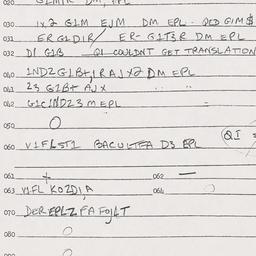 020 G1MIR DM, EPL
030 1x2 G1M EJM DM EPL - QLD G1M $
031 ERG1DIR/ ER- G1T3R DM EPL
032 D1 G1B QI COULDNT GET TRANSLATION
040 1ND2G1B+1RAJX2 DM EPL
041 23 G1B+ AJX " "
042 G1C1ND23 M EPL
050 O
QI =
060 V1FLST1 BACULTEA D3 EPL
061 + 062 —
063 V1FL KO2D1A 064 O
070 DEREPLZFAFOJ4T
080 O
090 O